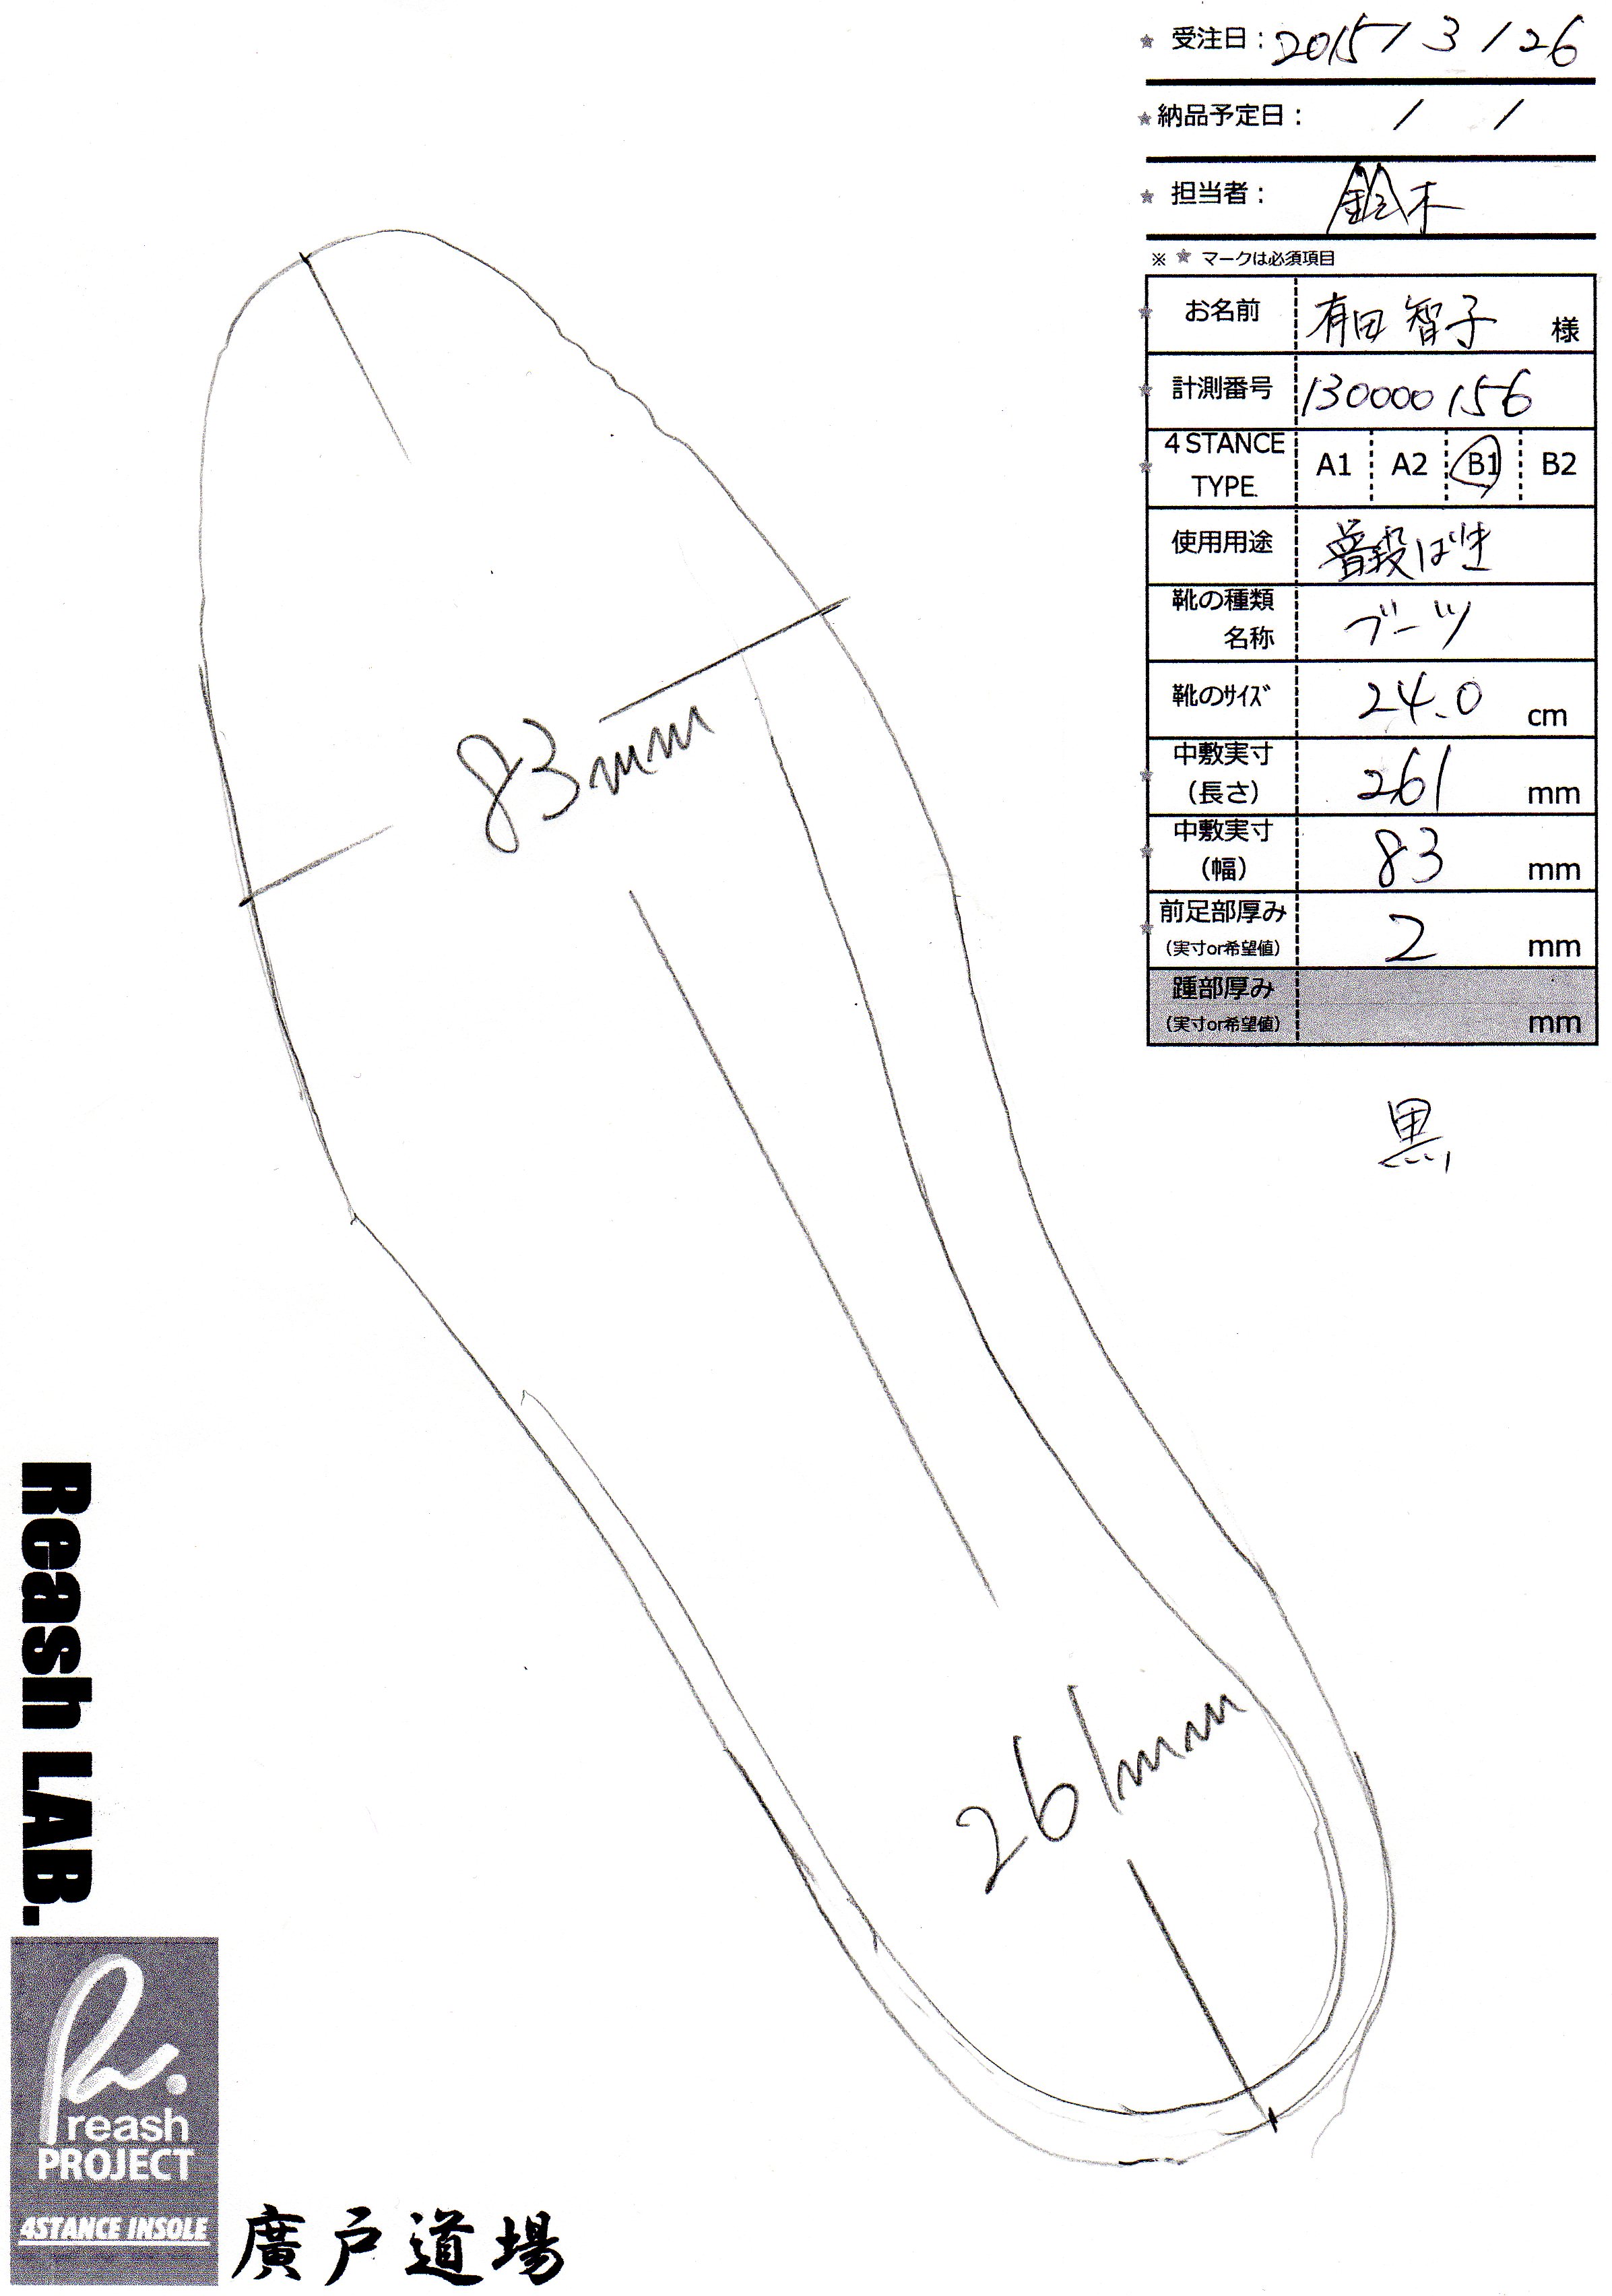 ★ 受注日：2015/3/26
★ 納品予定日： / /
★ 担当者： 鈴木
※ ★ マークは必須項目
★ お名前 有田 智子 様
★ 計測番号 130000156
★ 4STANCE TYPE. A1 A2 B1 B2
使用用途 普段ばき
靴の種類 名称 ブーツ
靴のサイズ 24.0 cm
★ 中敷実寸 (長さ) 261 mm
★ 中敷実寸 (幅) 83 mm
★ 前足部厚み (実寸or希望値) 2 mm
踵部厚み (実寸or希望値) mm
黒
83mm
261mm
Reash LAB.
reash
PROJECT
4STANCE INSOLE
廣戸道場